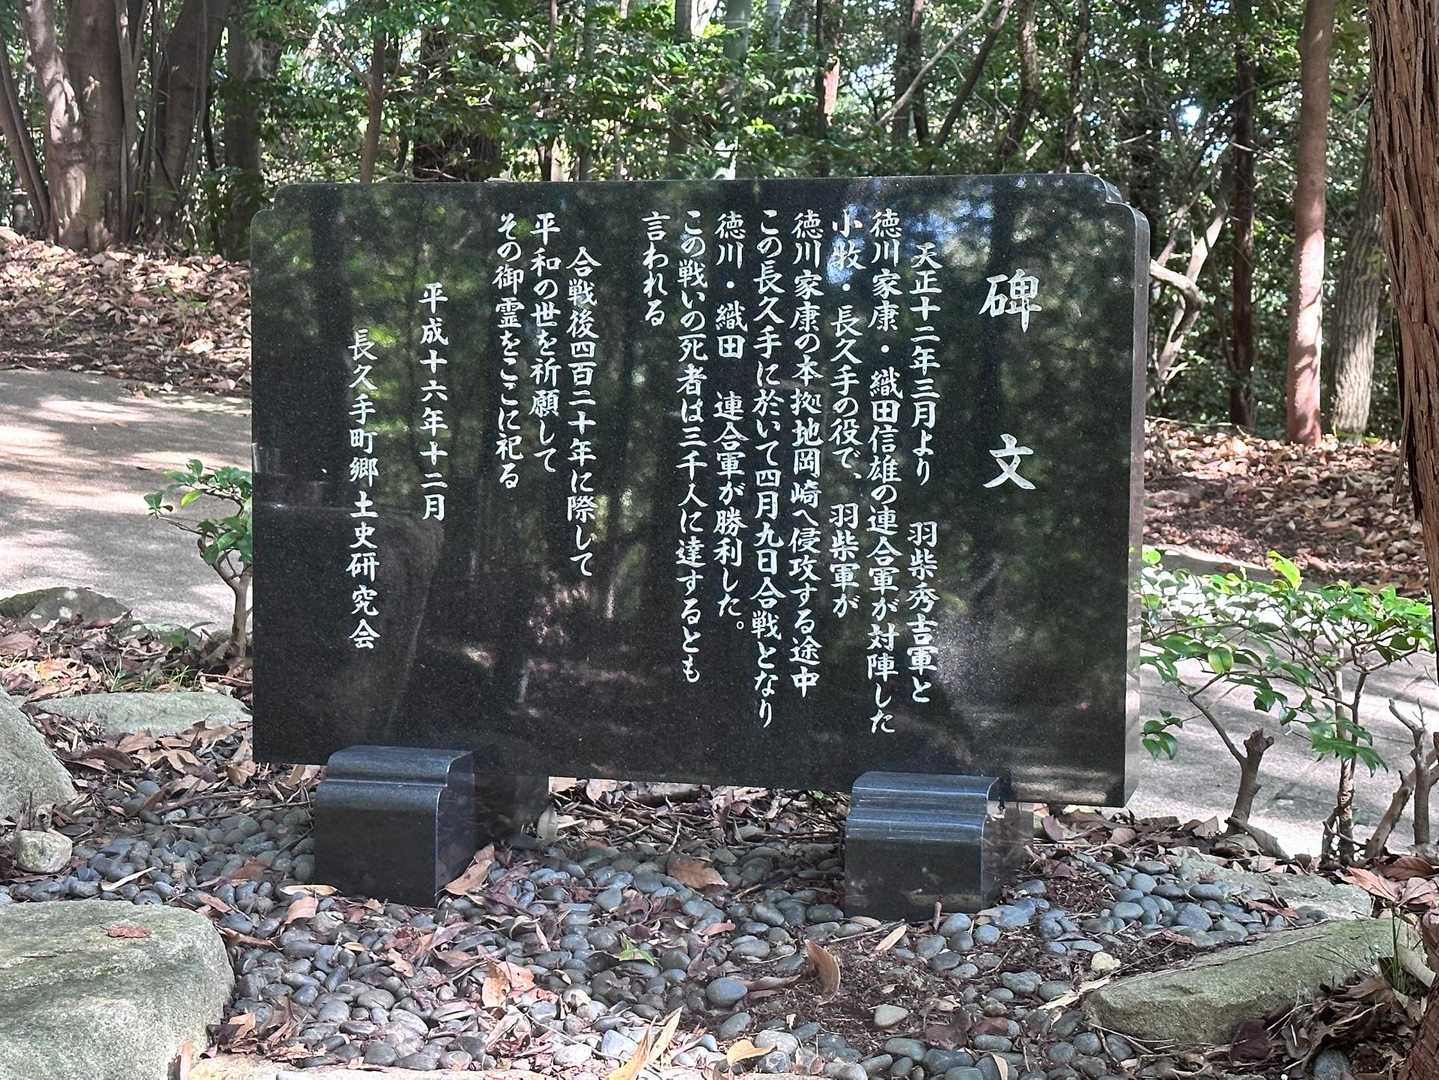 碑文
天正十二年三月より 羽柴秀吉軍と
徳川家康・織田信雄の連合軍が対陣した
小牧・長久手の役で、羽柴軍が
徳川家康の本拠地岡崎へ侵攻する途中
この長久手に於いて四月九日合戦となり
徳川・織田 連合軍が勝利した。
この戦いの死者は三千人に達するとも
言われる
合戦後四百二十年に際して
平和の世を祈願して
その御霊をここに祀る
平成十六年十二月
長久手町郷土史研究会